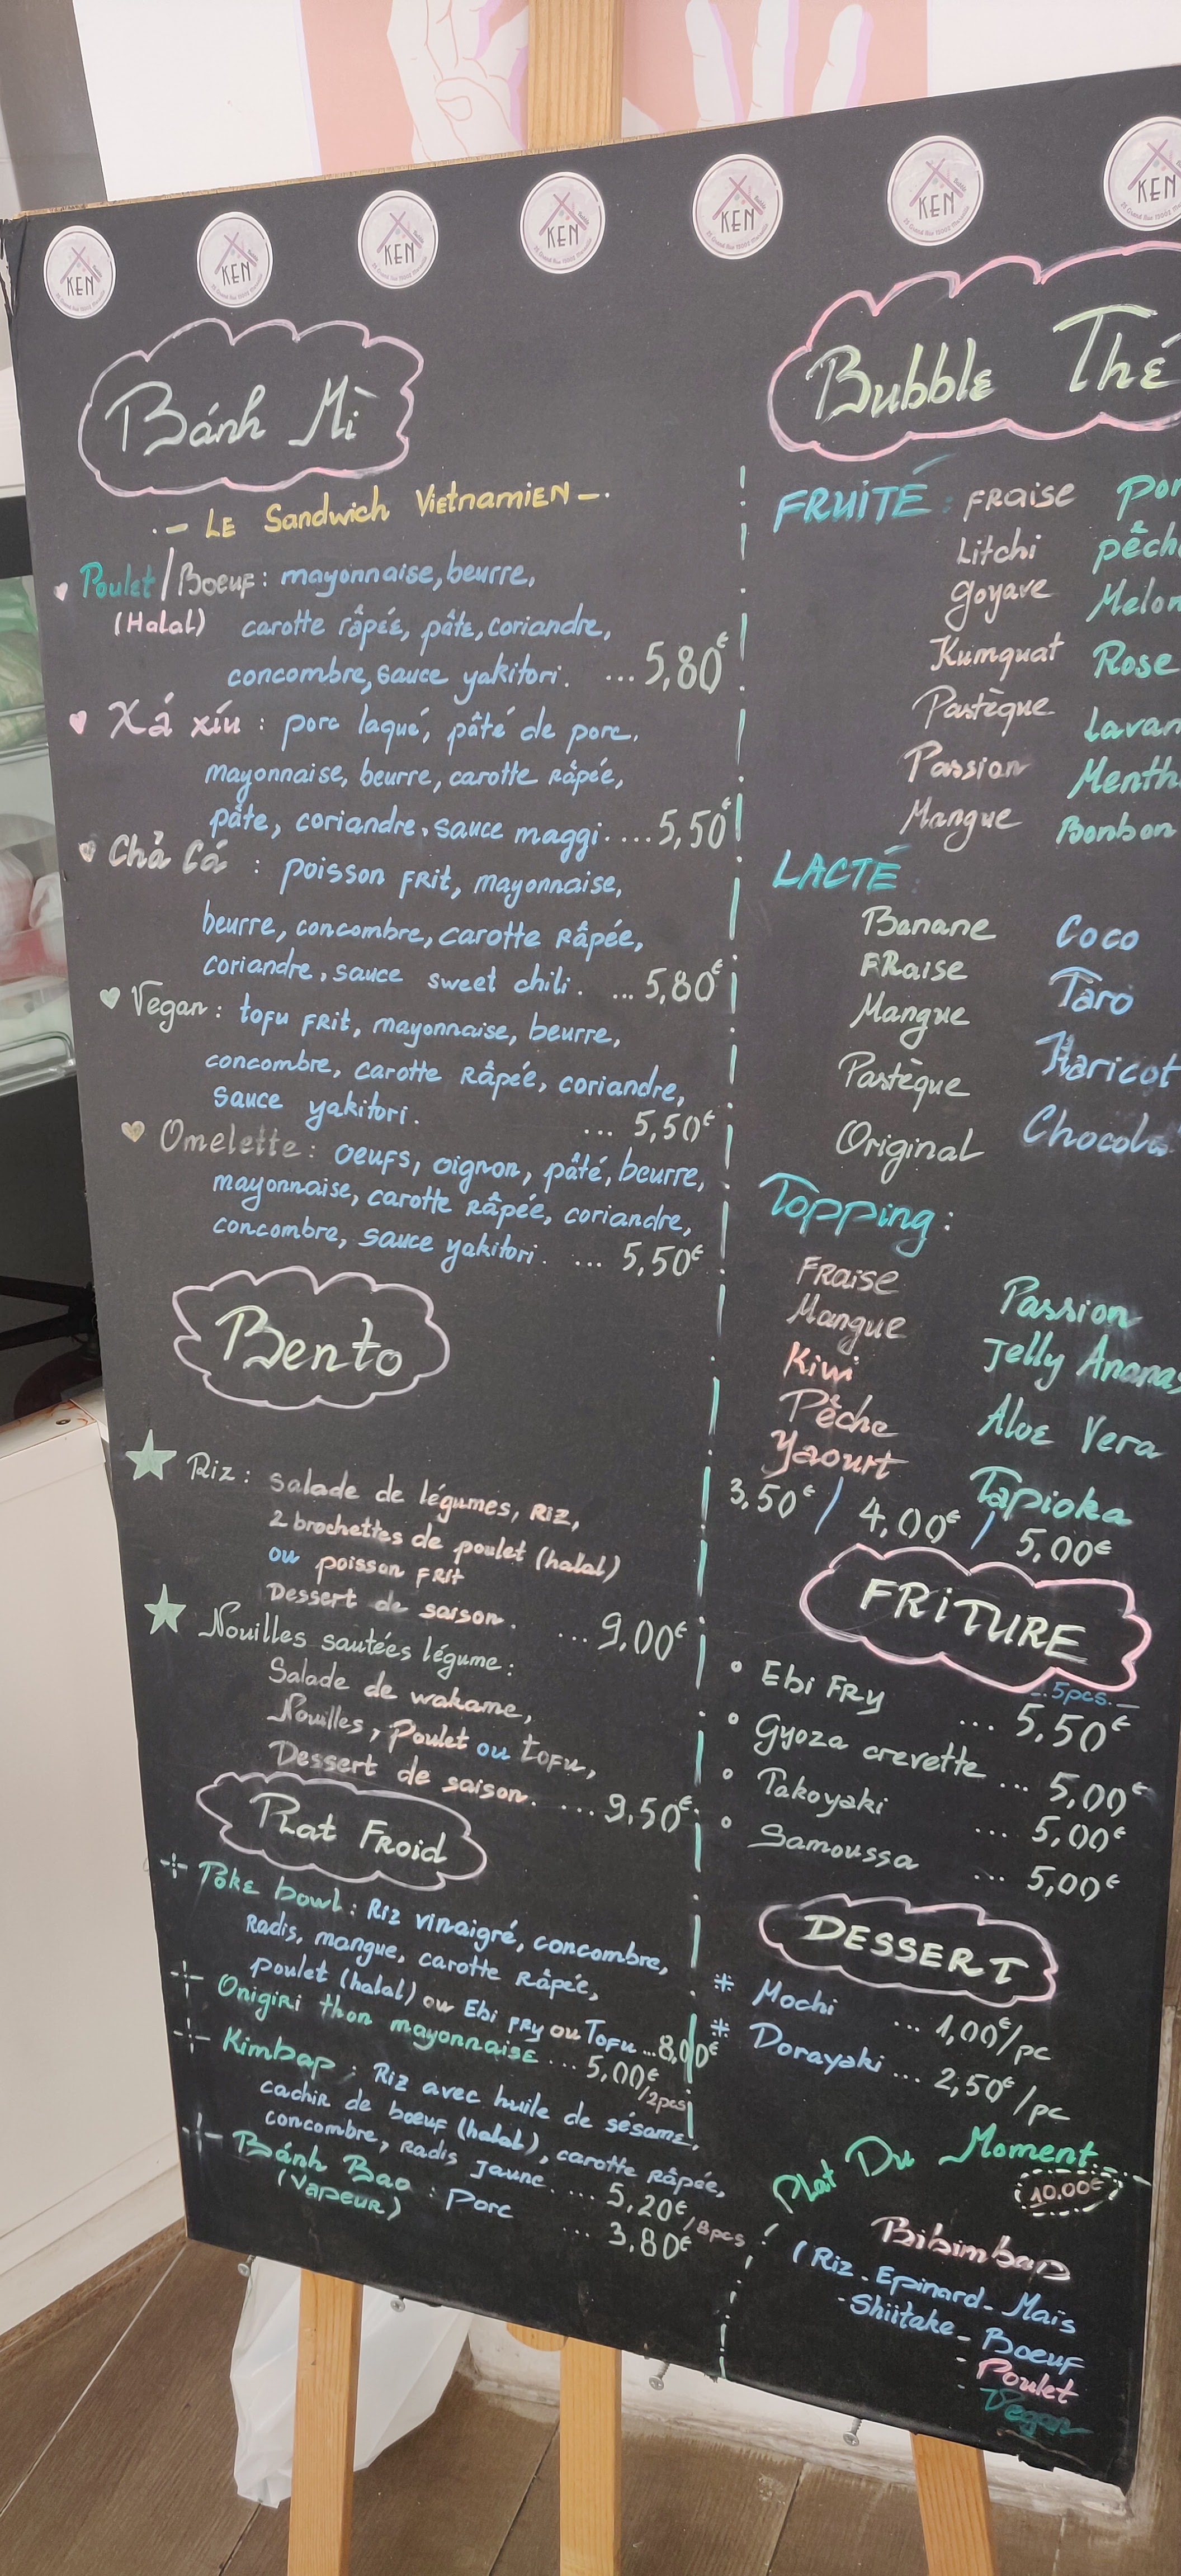 KEN KEN KEN KEN KEN KEN KEN
Bánh Mì
-- LE Sandwich VietnamiEN --
Poulet/Boeuf: mayonnaise, beurre,
(Halal) carotte râpée, pâte, coriandre,
concombre, sauce yakitori. ... 5,80€
Xá xíu : porc laqué, pâté de porc,
mayonnaise, beurre, carotte Râpée,
pâte, coriandre, sauce maggi....5,50€
Chả Cá : poisson FRit, mayonnaise,
beurre, concombre, carotte Râpée,
coriandre, sauce sweet chili. ...5,80€
Vegan: tofu FRit, mayonnaise, beurre,
concombre, carotte Râpée, coriandre,
Sauce yakitori. ... 5,50€
Omelette: oeufs, oignon, pâté, beurre,
mayonnaise, carotte Râpée, coriandre,
concombre, sauce yakitori. ... 5,50€
Bento
Riz: salade de légumes, Riz,
2 brochettes de poulet (halal)
ou poisson FRit
Dessert de saison. ... 9,00€
Nouilles sautées légume:
Salade de wakame,
Nouilles, Poulet ou toFu,
Dessert de saison. ... 9,50€
Plat Froid
Poke bowl: Riz vinaigré, concombre,
Radis, mangue, carotte Râpée,
poulet (halal) ou Ebi FRy ou ToFu...8,00€
Onigiri thon mayonnaise ... 5,00€/2pcs
Kimbap : Riz avec huile de sésame,
cachir de boeuf (halal), carotte Râpée,
concombre, radis Jaune.... 5,20€/8pcs
Bánh Bao : Porc .... 3,80€
(VapeuR)
Bubble Thé
FRUITÉ : FRaise
Litchi
Goyave Melon
Kumquat Rose
Pastèque
Passion
Mangue Bonbon
LACTÉ :
Banane Coco
FRaise Taro
Mangue Haricot
Pastèque
Original
Topping:
FRaise Passion
Mangue Jelly Ananas
Kiwi
Pêche Aloe Vera
Yaourt Tapioka
3,50€ / 4,00€ / 5,00€
FRiTURE
Ebi FRy -.5pcs.- ... 5,50€
Gyoza crevette ... 5,00€
Takoyaki ... 5,00€
Samoussa ... 5,00€
DESSERT
Mochi ... 1,00€/pc
Dorayaki ... 2,50€/pc
Plat Du Moment
10.00€
Bibimbap
(Riz - Epinard - Maïs
- Shiitake - Boeuf
- Poulet
- Vegan